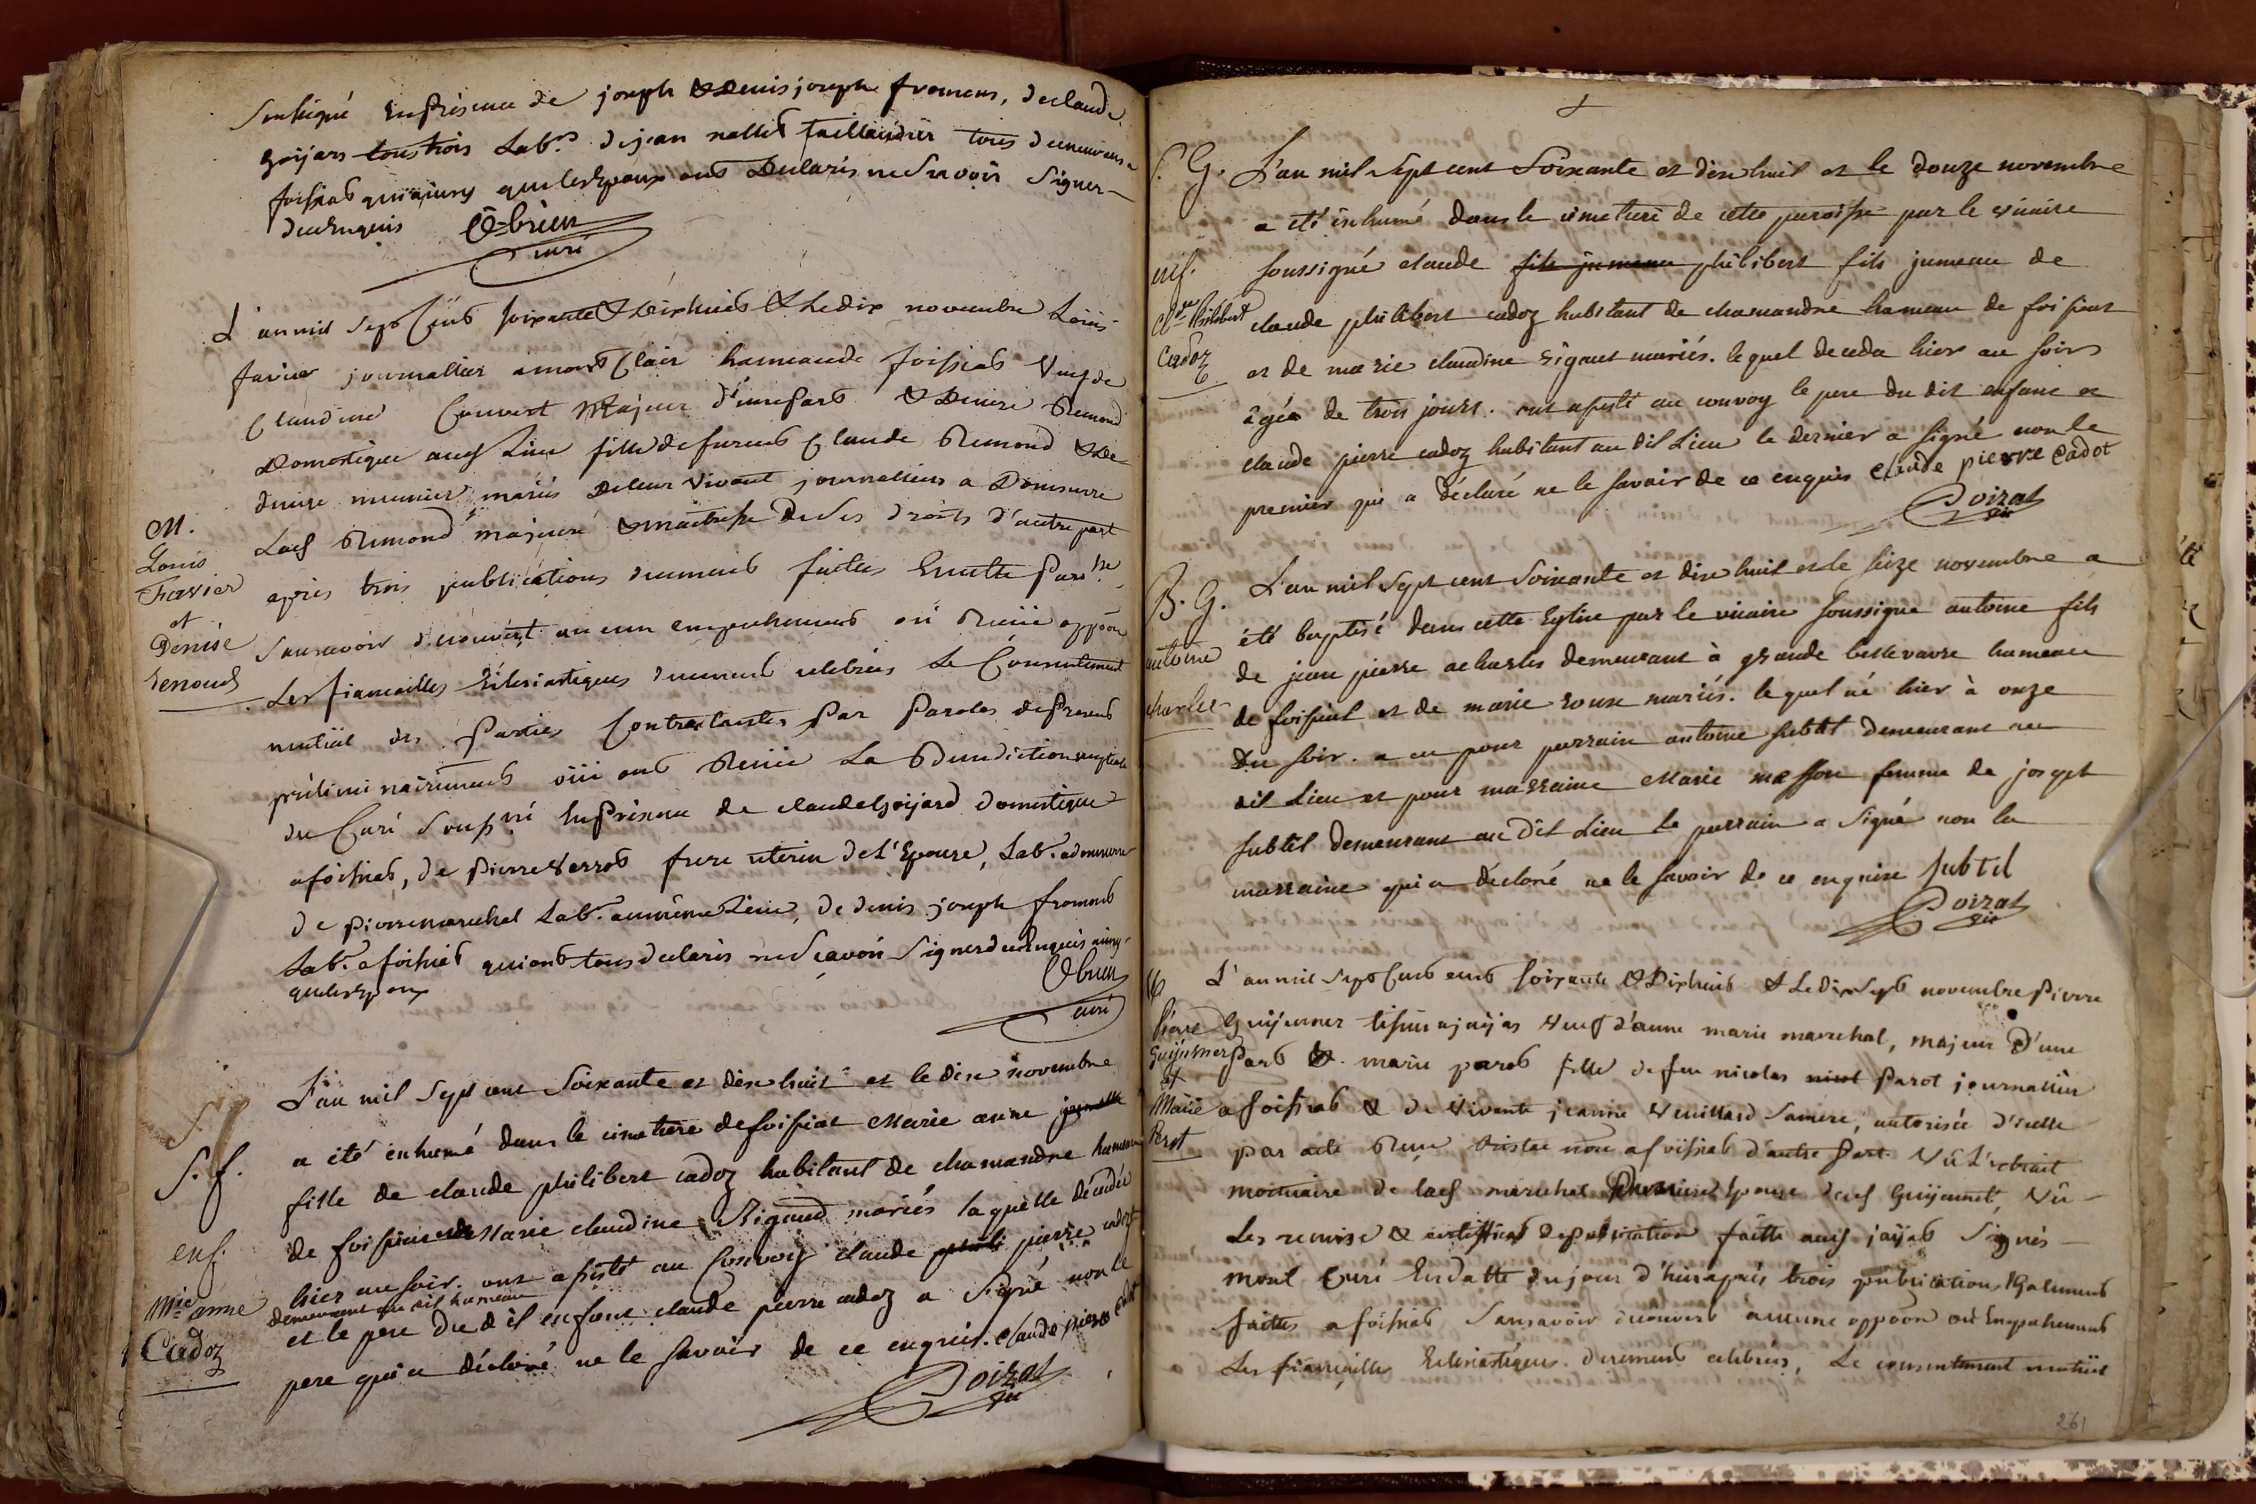 en Présence de joseph & Denis joseph fromens, de claude
goijars tous trois Lab.rs de jean taillandier tous demeurans a
foissiat qui ainsy que les Epoux ont Déclarés ne Savoir Signer
de ce Enquis Ô-brien
curé
L'an mil Sept Cents soixante & Dixhuit & Le dix novembre Loüis
favier journallier a mont Clair hameau de foissiat Veuf de
Claudine Convert Majeur d'une part & Denise Remond
Domestique audt Lieu fille de furent Claude Remond & De
denise meunier mariés De leur Vivant journalliers a Domsurre
Ladt Remond majeure & maitresse De Ses droits d'autre part
après trois publications duement faites En cette Paroisse
Sans avoir découvert aucun empechement ni Reçu
Les fiancailles Eclesiastiques duement celebrées Le Consentement
mutüel des Parties Contractantes Par Paroles de Present
préliminairement oüi ont Reçüe La Benediction nuptiale
du Curé Souss.né En Présence de claude Goijard Domestique
a foissiat, de Pierre frere uterin de L'Epouse, Lab.r a domsurre
de Pierre marechal Lab.r au même Lieu, de denis joseph froment
Lab.r a foissiat qui ont tous declarés ne Sçavoir Signer de ce Enquis ainsy
que les Epoux Obrien
curé
M.
Louis
Favier
et
Denise
renoud
L'an mil Sept cent Soixante et dix huit et le dix novembre
a été inhumé dans le cimetiere de foissiat Marie anne jumelle
fille de claude philibert cadoz habitant de chamandre hameau
de foissiat et de Marie claudine Rigaud mariés laquelle décéda
hier au soir. ont assisté au Convoy claude pierre cadoz
demeurant au dit hameau
et le pere du dit enfant claude pierre cadoz a Signé non le
pere qui a déclaré ne le savoir de ce enquis. claude pierre Cadot
Poizat
vic
S. f.
enf.
Mie anne
Cadoz
S. G. L'an mil Sept cent Soixante et dix huit et le douze novembre
a été inhumé dans le cimetiere de cette paroisse par le vicaire
soussigné claude fils jumeau philibert fils jumeau de
claude philibert cadoz habitant de chamandre hameau de foissiat
et de marie claudine rigaut mariés. lequel deceda hier au soir
âgée de trois jours. ont assisté au convoy le pere du dit enfant et
claude pierre cadoz habitant au dit Lieu le dernier a signé non le
premier qui a déclaré ne le savoir de ce enquis Claude pierre Cadot
Poizat
vic
enf.
Cl.de Philibert
Cadoz
B. G. L'an mil Sept cent Soixante et dix huit et le seize novembre a
été baptisé dans cette Eglise par le vicaire soussigné antoine fils
de jean pierre acharles demeurant à grande bellevavre hameau
de foissiat et de marie roux mariés. lequel né hier à onze
du soir. a eu pour parrain antoine subtil demeurant au
dit Lieu et pour marraine Marie masson femme de joseph
subtil demeurant au Dit Lieu Le parrain a Signé non la
marraine qui a déclaré ne le savoir de ce enquise Subtil
Poizat
vic
antoine
charles
L'an mil Sept Cents soixante & Dixhuit & Le Dix Sept novembre Pierre
Guijennet a jaijas Veuf d'anne marie marechal, majeur D'une
Part & marie parot fille de feu nicolas nicol Parot journallier
a foissiat & de Vivante jeanne Veuillard Sa mere, autorisée d'icelle
par acte Reçu nore a foissiat d'autre Part. Vû L'extrait
mortuaire de ladt marechal Premiere Epouse dudt Guijennet, Vû
Les remise & certifficat de Publication faitte audt jaijat Signés
mont Curé En datte du jour d'hier après trois publications Egalement
faittes a foissiat Sans avoir découvert aucune oppoon ou Empechement
Les fiancailles Eclesiastiques duement celebrées, Le consentement mutüel
Pierre
Guijennet
et
Marie
Perot
261